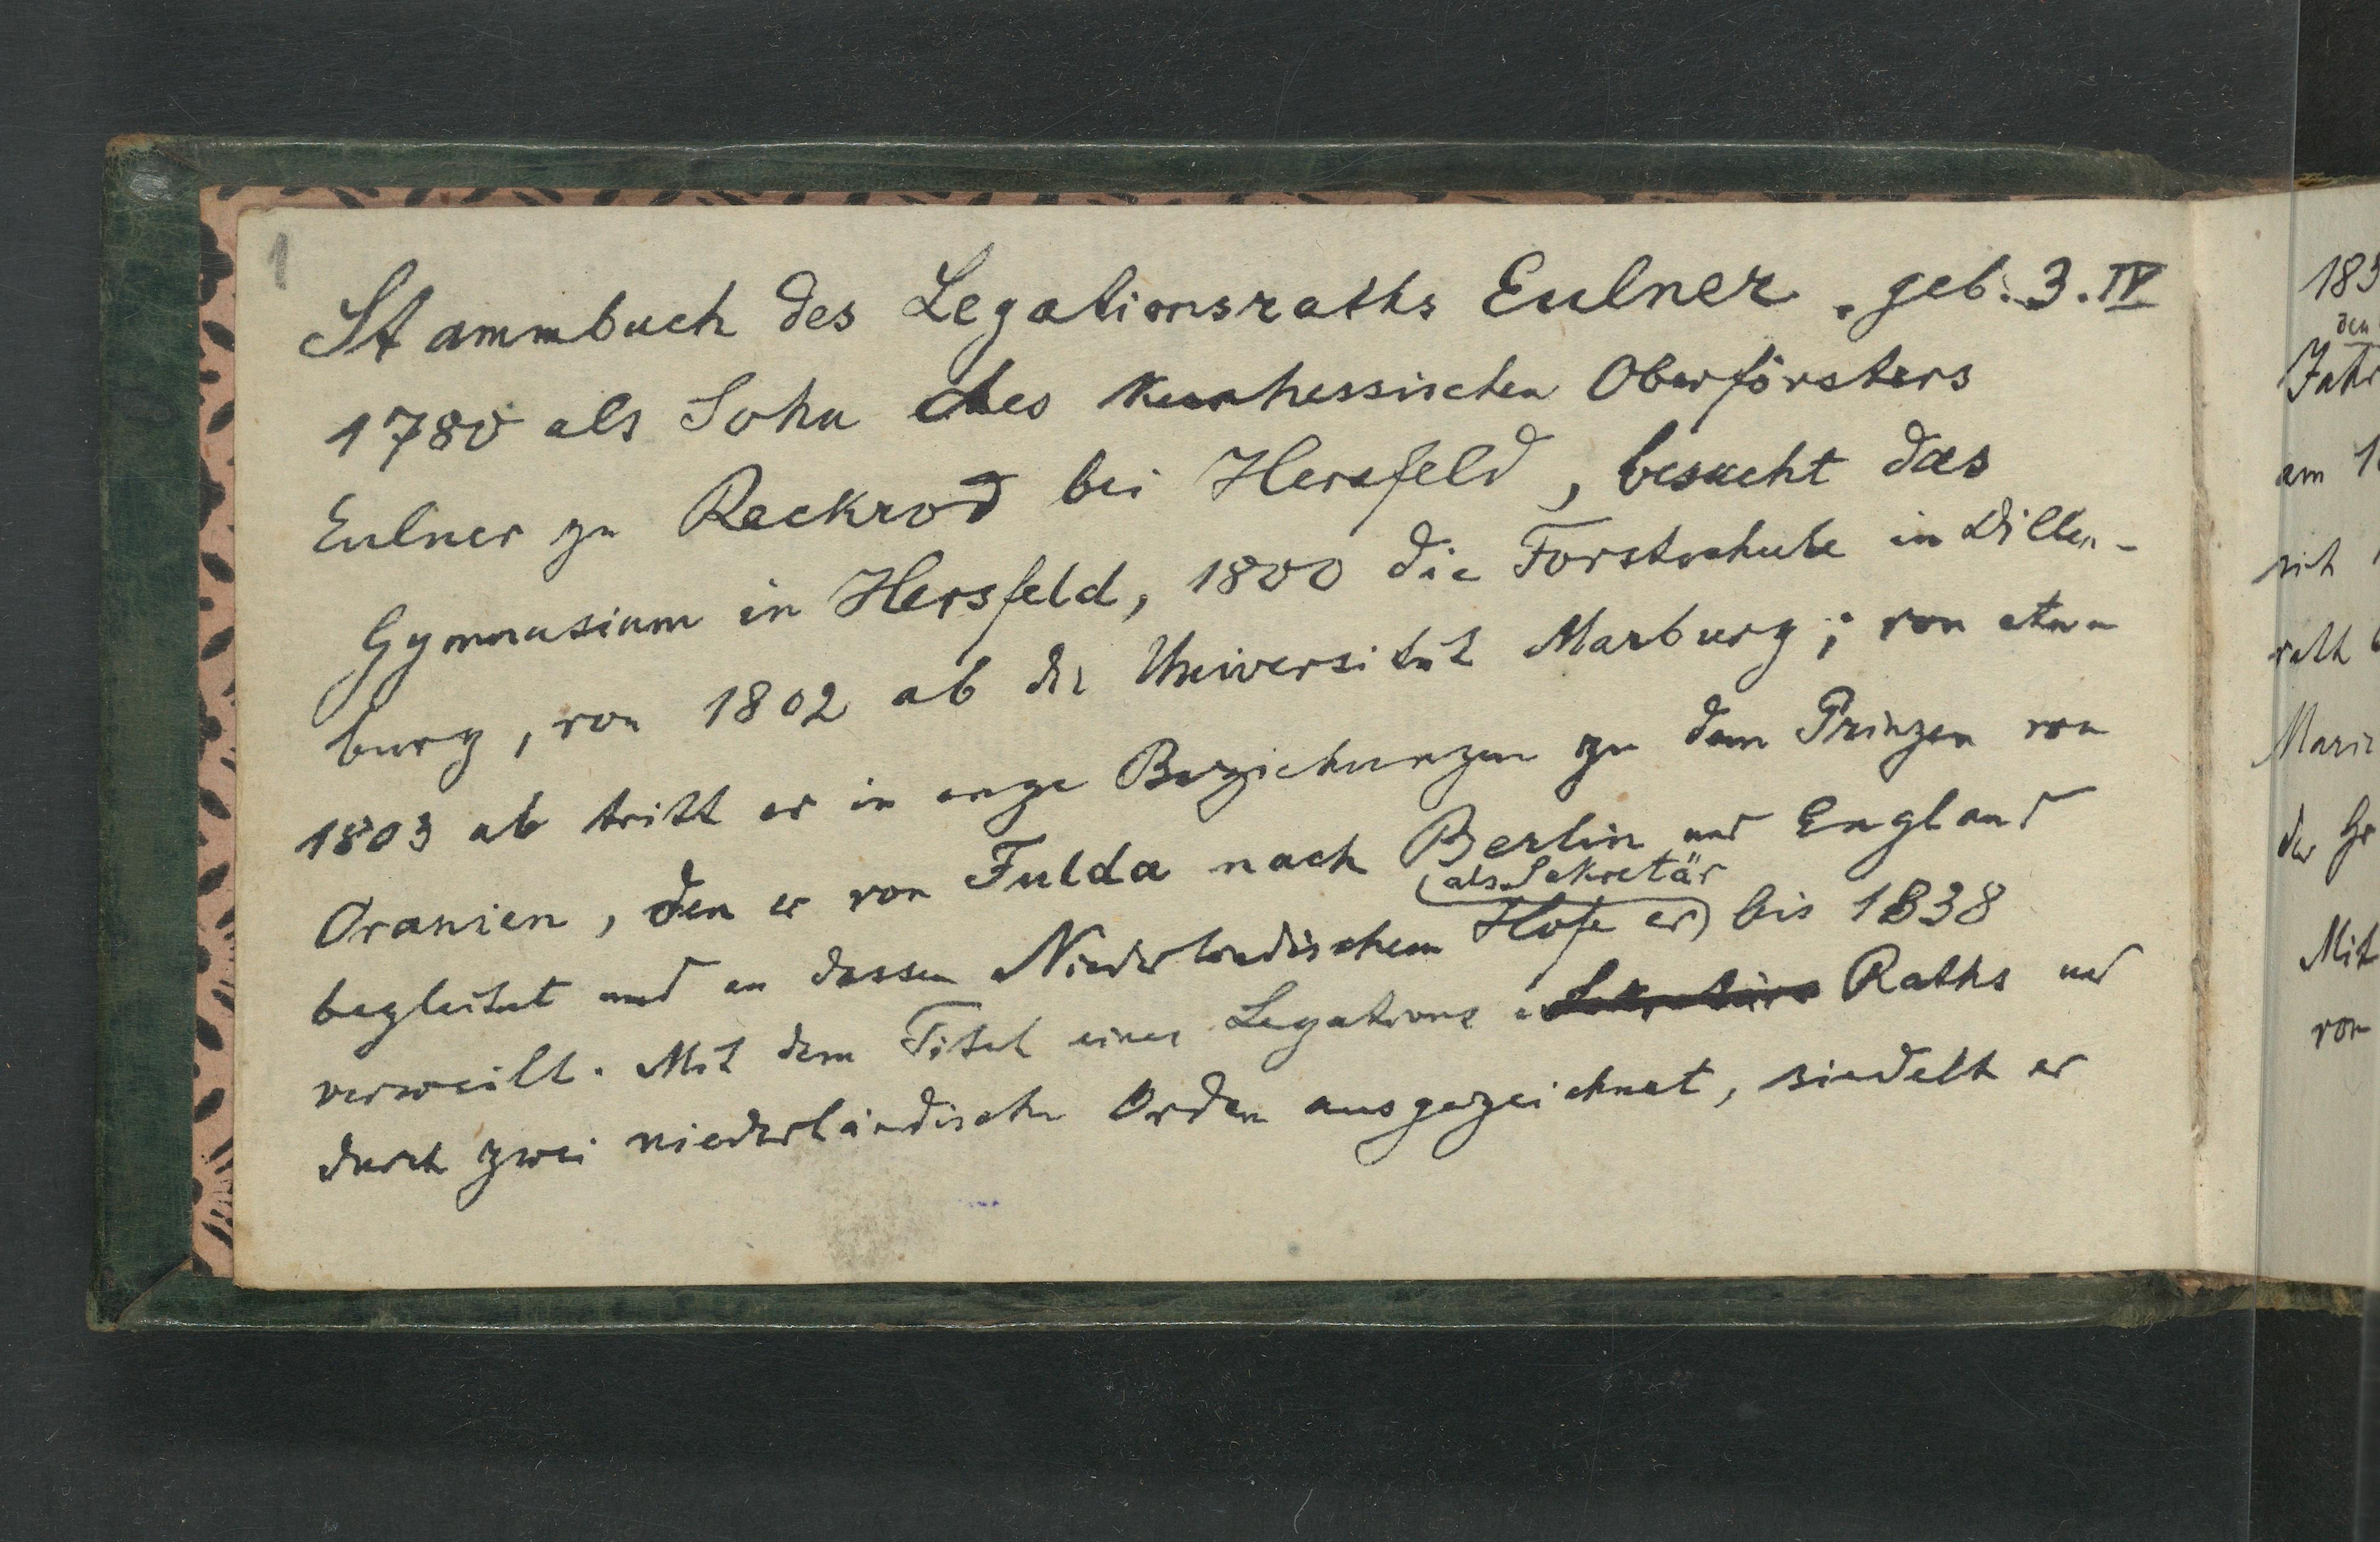 1
Stammbuch des Legationsraths Eulner. geb. 3. IV
1780 als Sohn des kurhessischen Oberförsters
Eulner zu Reckrod bei Hersfeld, besucht das
Gymnasium in Hersfeld, 1800 die Forstschule in Dillen-
burg, von 1802 ab die Universität Marburg; von etwa
1803 ab tritt er in enge Beziehungen zu dem Prinzen von
Oranien, den er von Fulda nach Berlin und England
als Sekretär
begleitet und an dessen Niederländischem Hofe er bis 1838
verweilt. Mit dem Titel eines Legations Sekretärs Raths und
durch zwei niederländische Orden ausgezeichnet, siedelt er
183
den
Jahr
am 1
sich
rath
Marie
der Gr
Mit
von